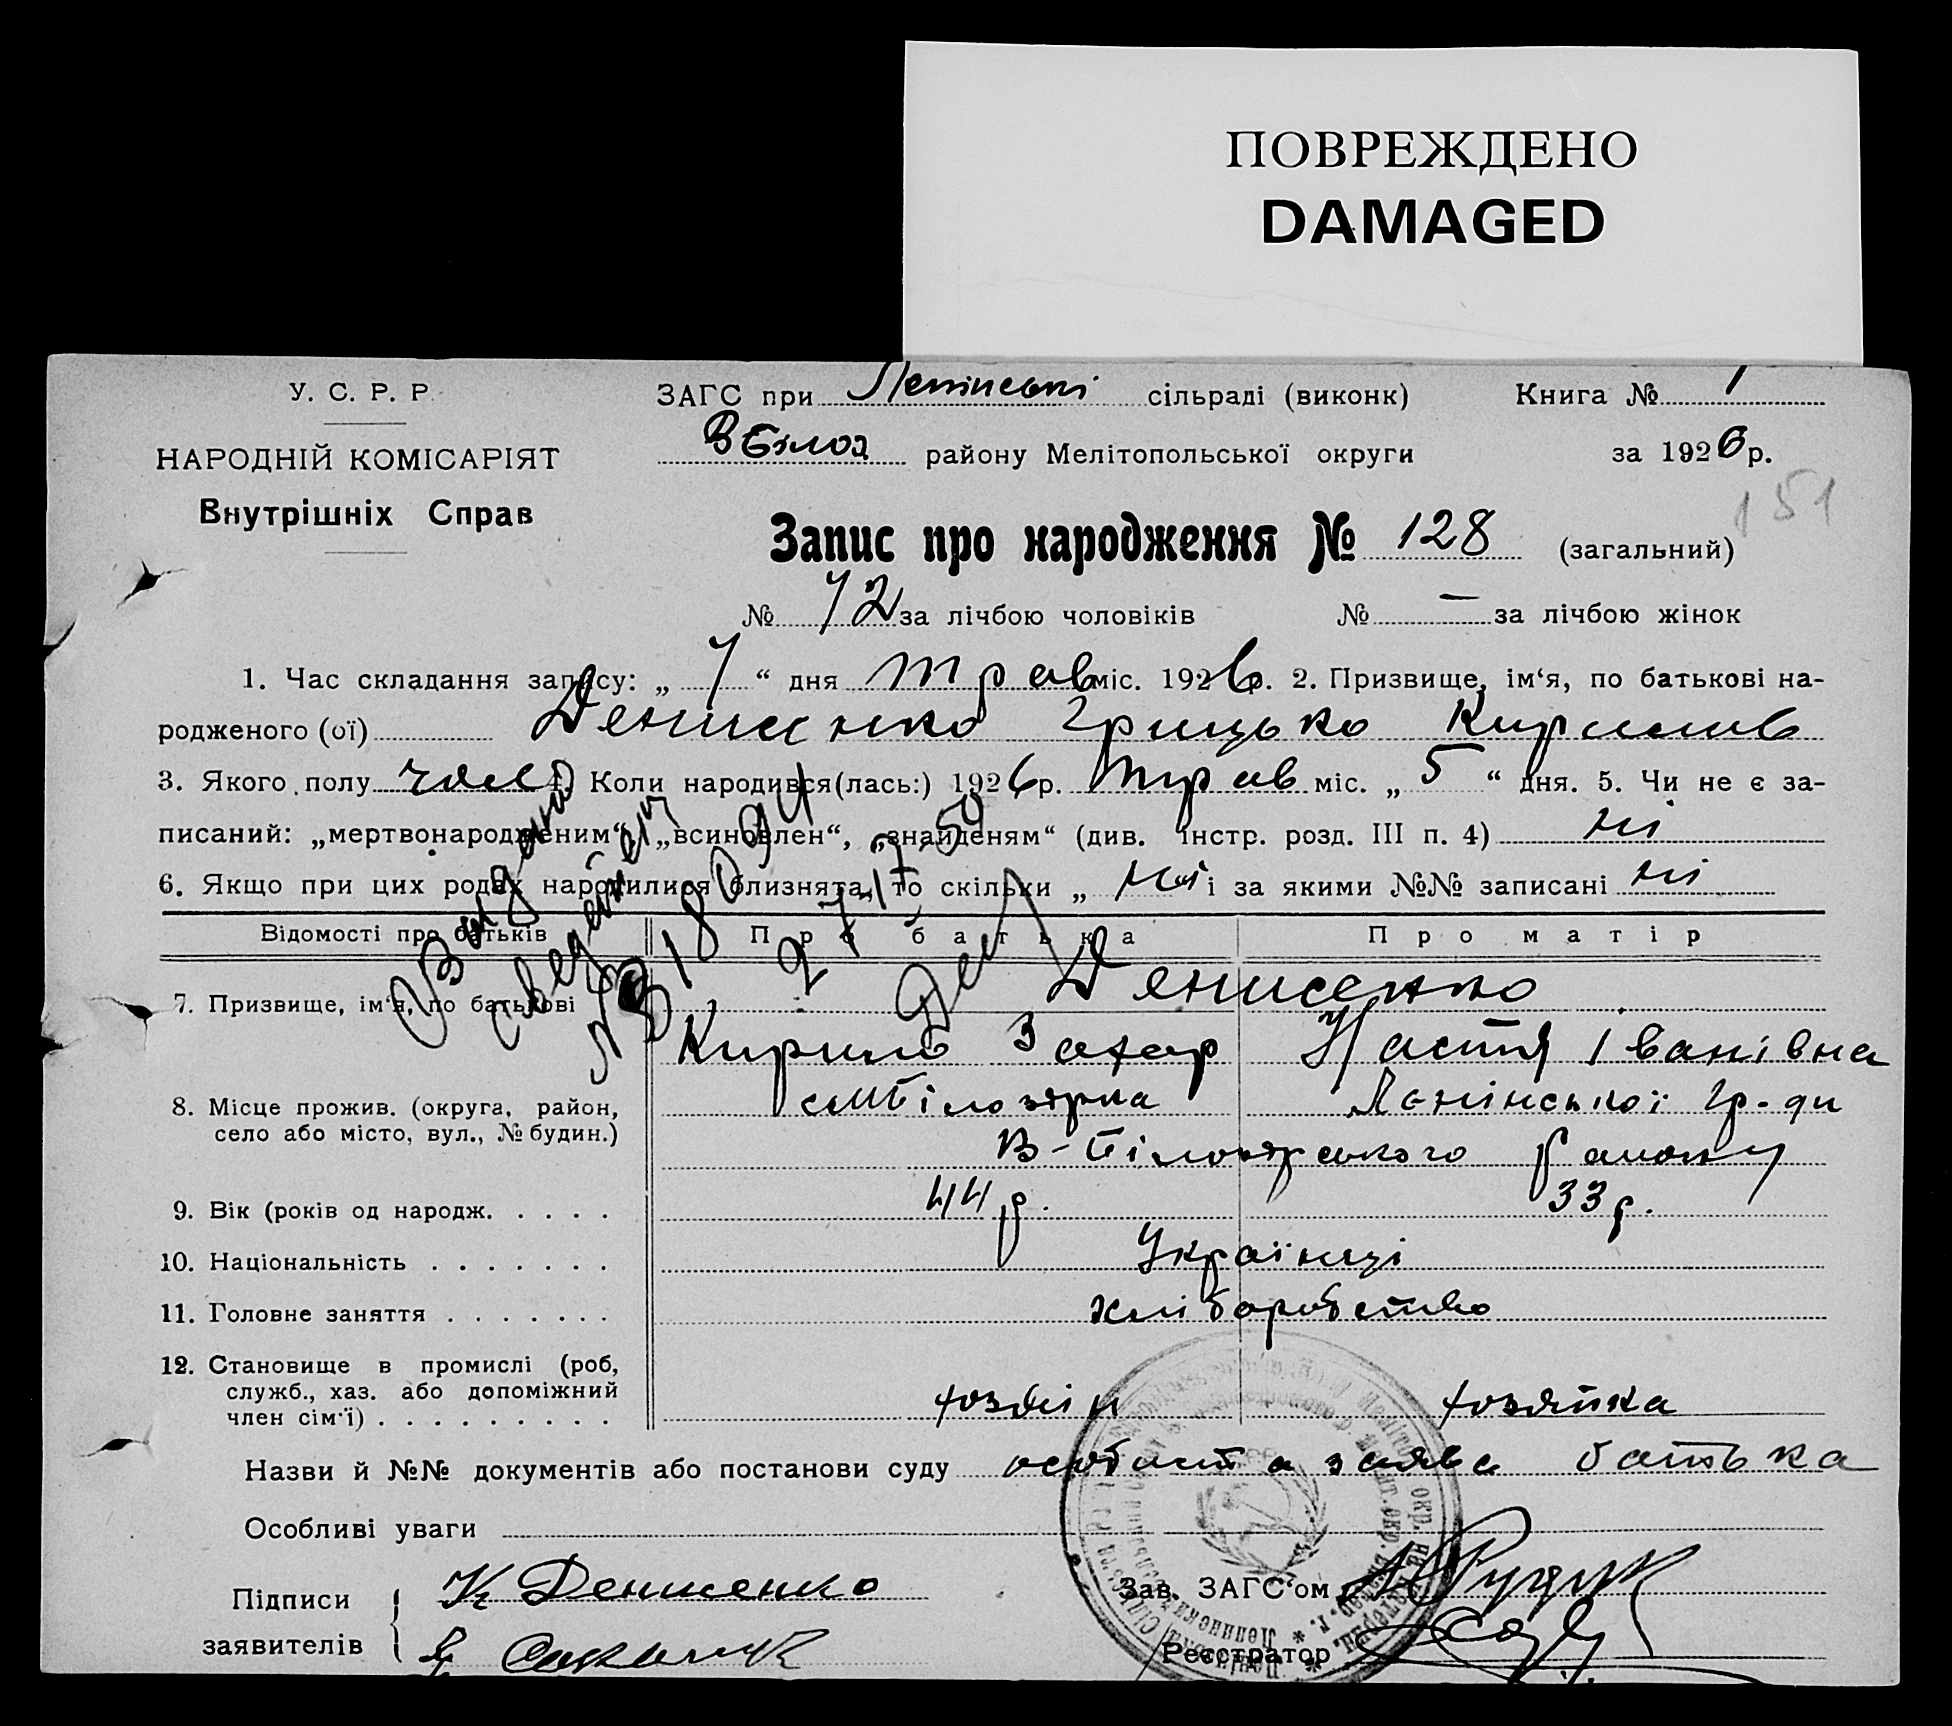 ПОВРЕЖДЕНО
DAMAGED
У. С. Р. Р.
НАРОДНІЙ КОМІСАРІЯТ
Внутрішніх Справ
ЗАГС при Ленінські сільраді (виконк) Книга № 1
В Білоз району Мелітопольської округи за 1926 р.
151
Запис про народження № 128 (загальний)
№ 72 за лічбою чоловіків № — за лічбою жінок
1. Час складання запису: „ 7 “ дня трав міс. 1926 р. 2. Призвище, ім‘я, по батькові на-
родженого (ої) Денисенко Грицько Кирилів
3. Якого полу чол 4. Коли народився(лась:) 1926 р. трав міс. „ 5 “ дня. 5. Чи не є за-
писаний: „мертвонародженим“, „всиновлен“, „знайденям“ (див. інстр. розд. III п. 4) ні
6. Якщо при цих родах народилися близнята, то скільки „ ні “ і за якими №№ записані ні
Відомості про батьків Про батька Про матір
7. Призвище, ім‘я, по батькові Денисенко
Кирило Захар Настя Іванівна
8. Місце прожив. (округа, район,
село або місто, вул., № будин.)
Білозірка Ленінської
В-Білозірського району
9. Вік (років од народж. . . . . 44 р. 33 р.
10. Національність . . . . . . . Українці
11. Головне заняття . . . . . . . хліборобство
12. Становище в промислі (роб,
служб., хаз. або допоміжний
член сім‘ї) . . . . . . . . . хозяїн хозяйка
Назви й №№ документів або постанови суду особиста заява батька
Особливі уваги
Підписи
заявителів
К Денисенко
Зав. ЗАГС‘ом
Реєстратор